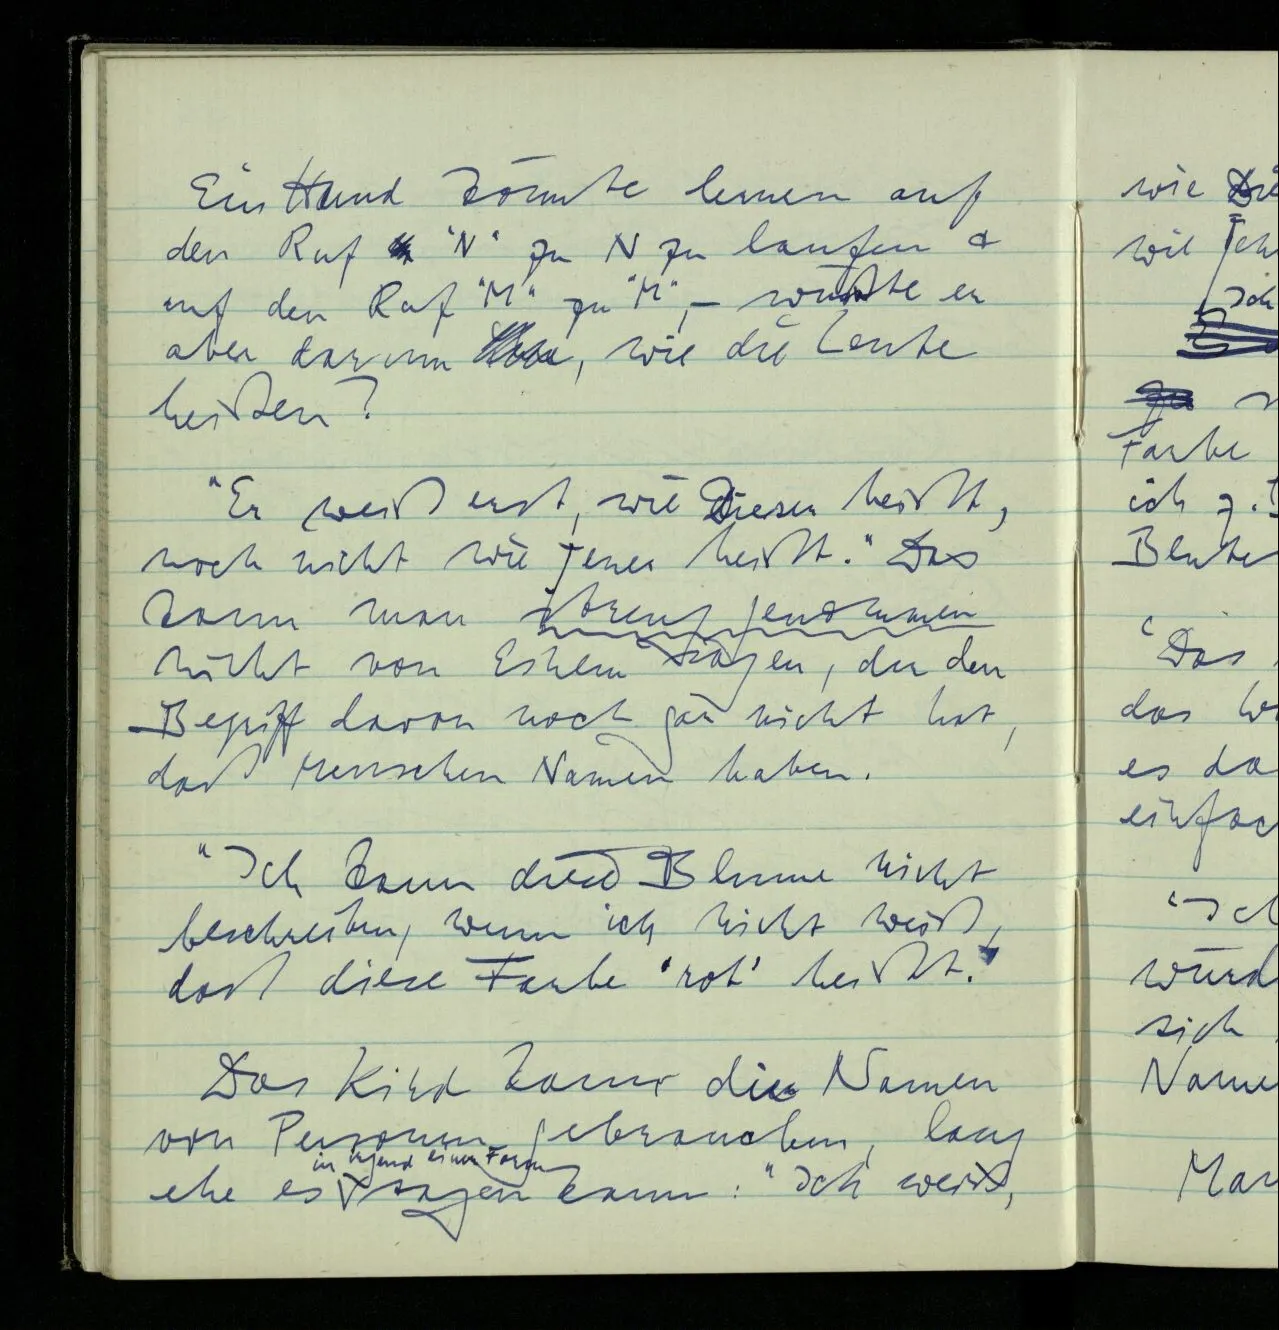 Ein Hund könnte lernen auf
den Ruf "N" zu N zu laufen &
auf den Ruf "M" zu "M", – wüßte er
aber darum, wie die Leute
heißen?
"Er weiß erst, wie Dieser heißt,
noch nicht wie jener heißt." Das
kann man streng genommen
nicht von Einem sagen, der den
Begriff davon noch gar nicht hat,
daß Menschen Namen haben.
"Ich kann diese Blume nicht
beschreiben, wenn ich nicht weiß,
daß diese Farbe 'rot' heißt."
Das Kind kann die Namen
von Personen gebrauchen, lang
in irgend einer Form
ehe es sagen kann: "Ich weiß,
wie
wie
ich
Farbe
ich z.
"Das
das
es
"Ich
sich